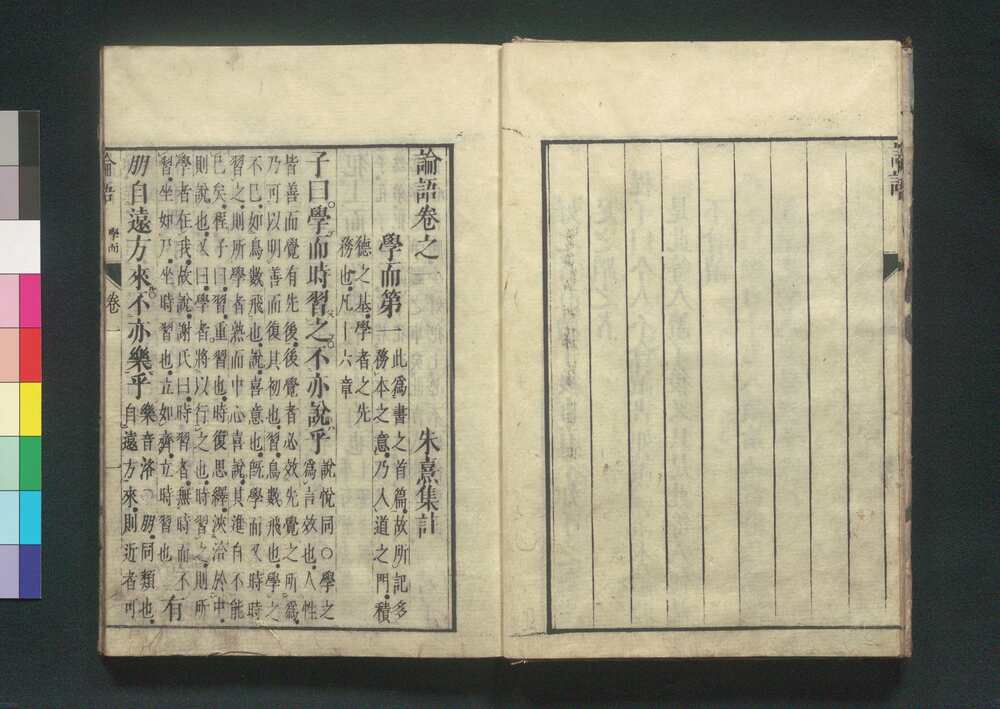 論語
論語卷之一　朱熹集註
學而第一
此爲書之首篇故所記多
務本之意乃入道之門積
德之基學者之先
務也凡十六章
子曰學而時習之不亦說乎
說悅同○學之
爲言效也人性
皆善而覺有先後後覺者必效先覺之所爲
乃可以明善而復其初也習鳥數飛也學之
不已如鳥數飛也說喜意也既學而又時時
習之則所學者熟而中心喜說其進自不能
已矣程子曰習重習也時復思繹浹洽於中
則說也又曰學者將以行之也時習之則所
學者在我故說謝氏曰時習者無時而不
習坐如尸坐時習也立如齊立時習也
有
朋自遠方來不亦樂乎
樂音洛○朋同類也
自遠方來則近者可
論語
學而
卷一
一